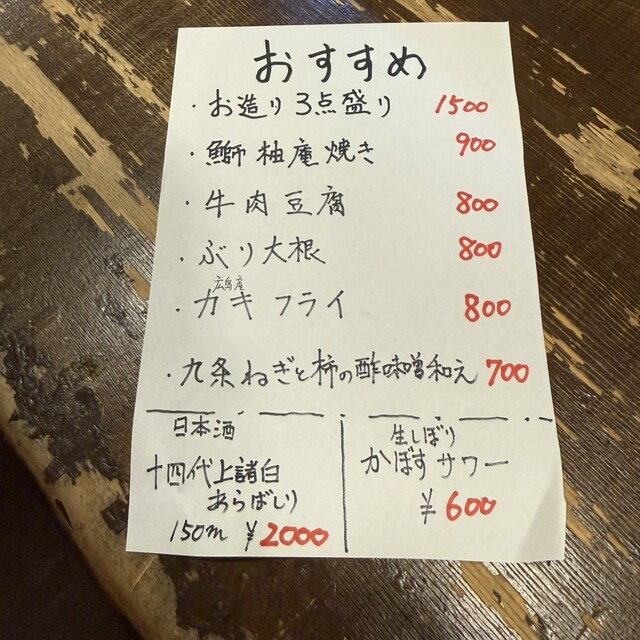 おすすめ
・お造り3点盛り 1500
・鰤柚庵焼き 900
・牛肉豆腐 800
・ぶり大根 800
広島産
・カキフライ 800
・九条ねぎと柿の酢味噌和え 700
日本酒
十四代上諸白
あらばしり
150m ¥2000
生しぼり
かぼすサワー
¥600